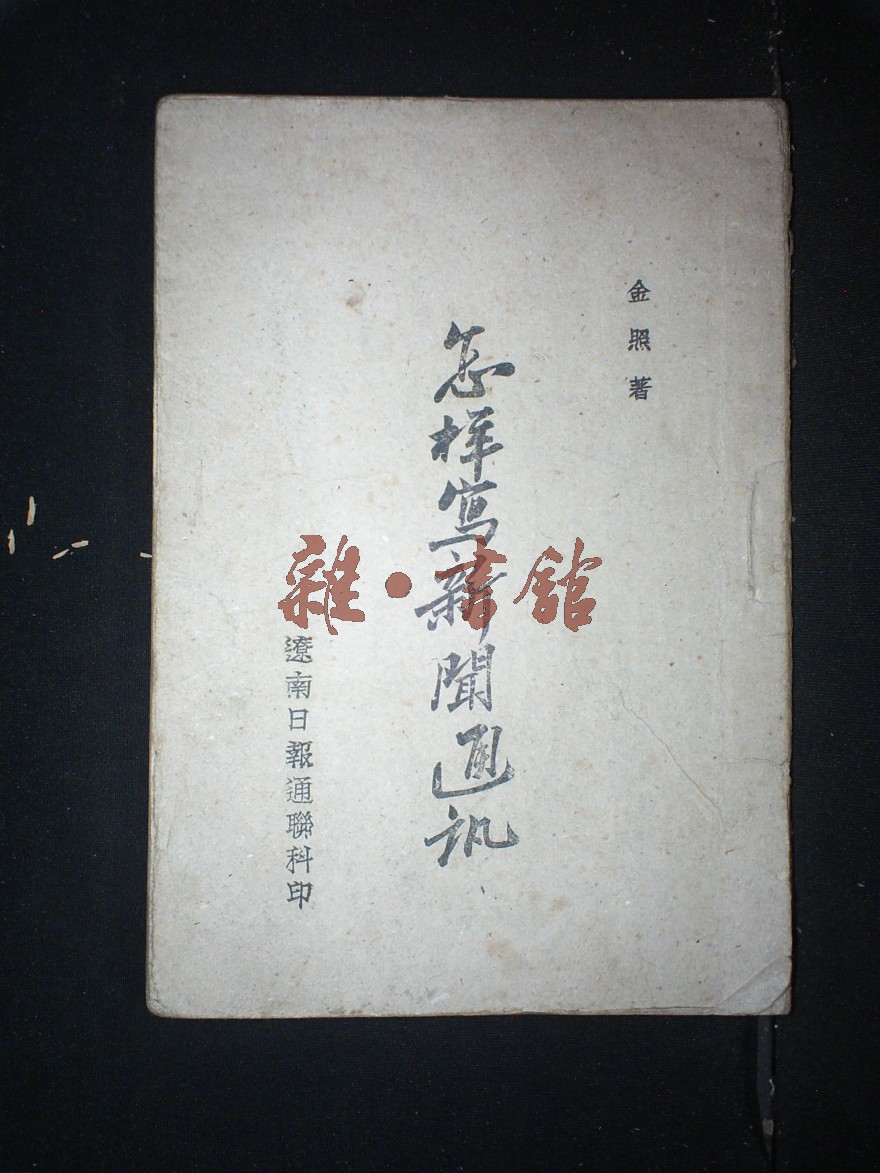 金照著
怎样写新聞通訊
遼南日報通聯科印
雜·書館